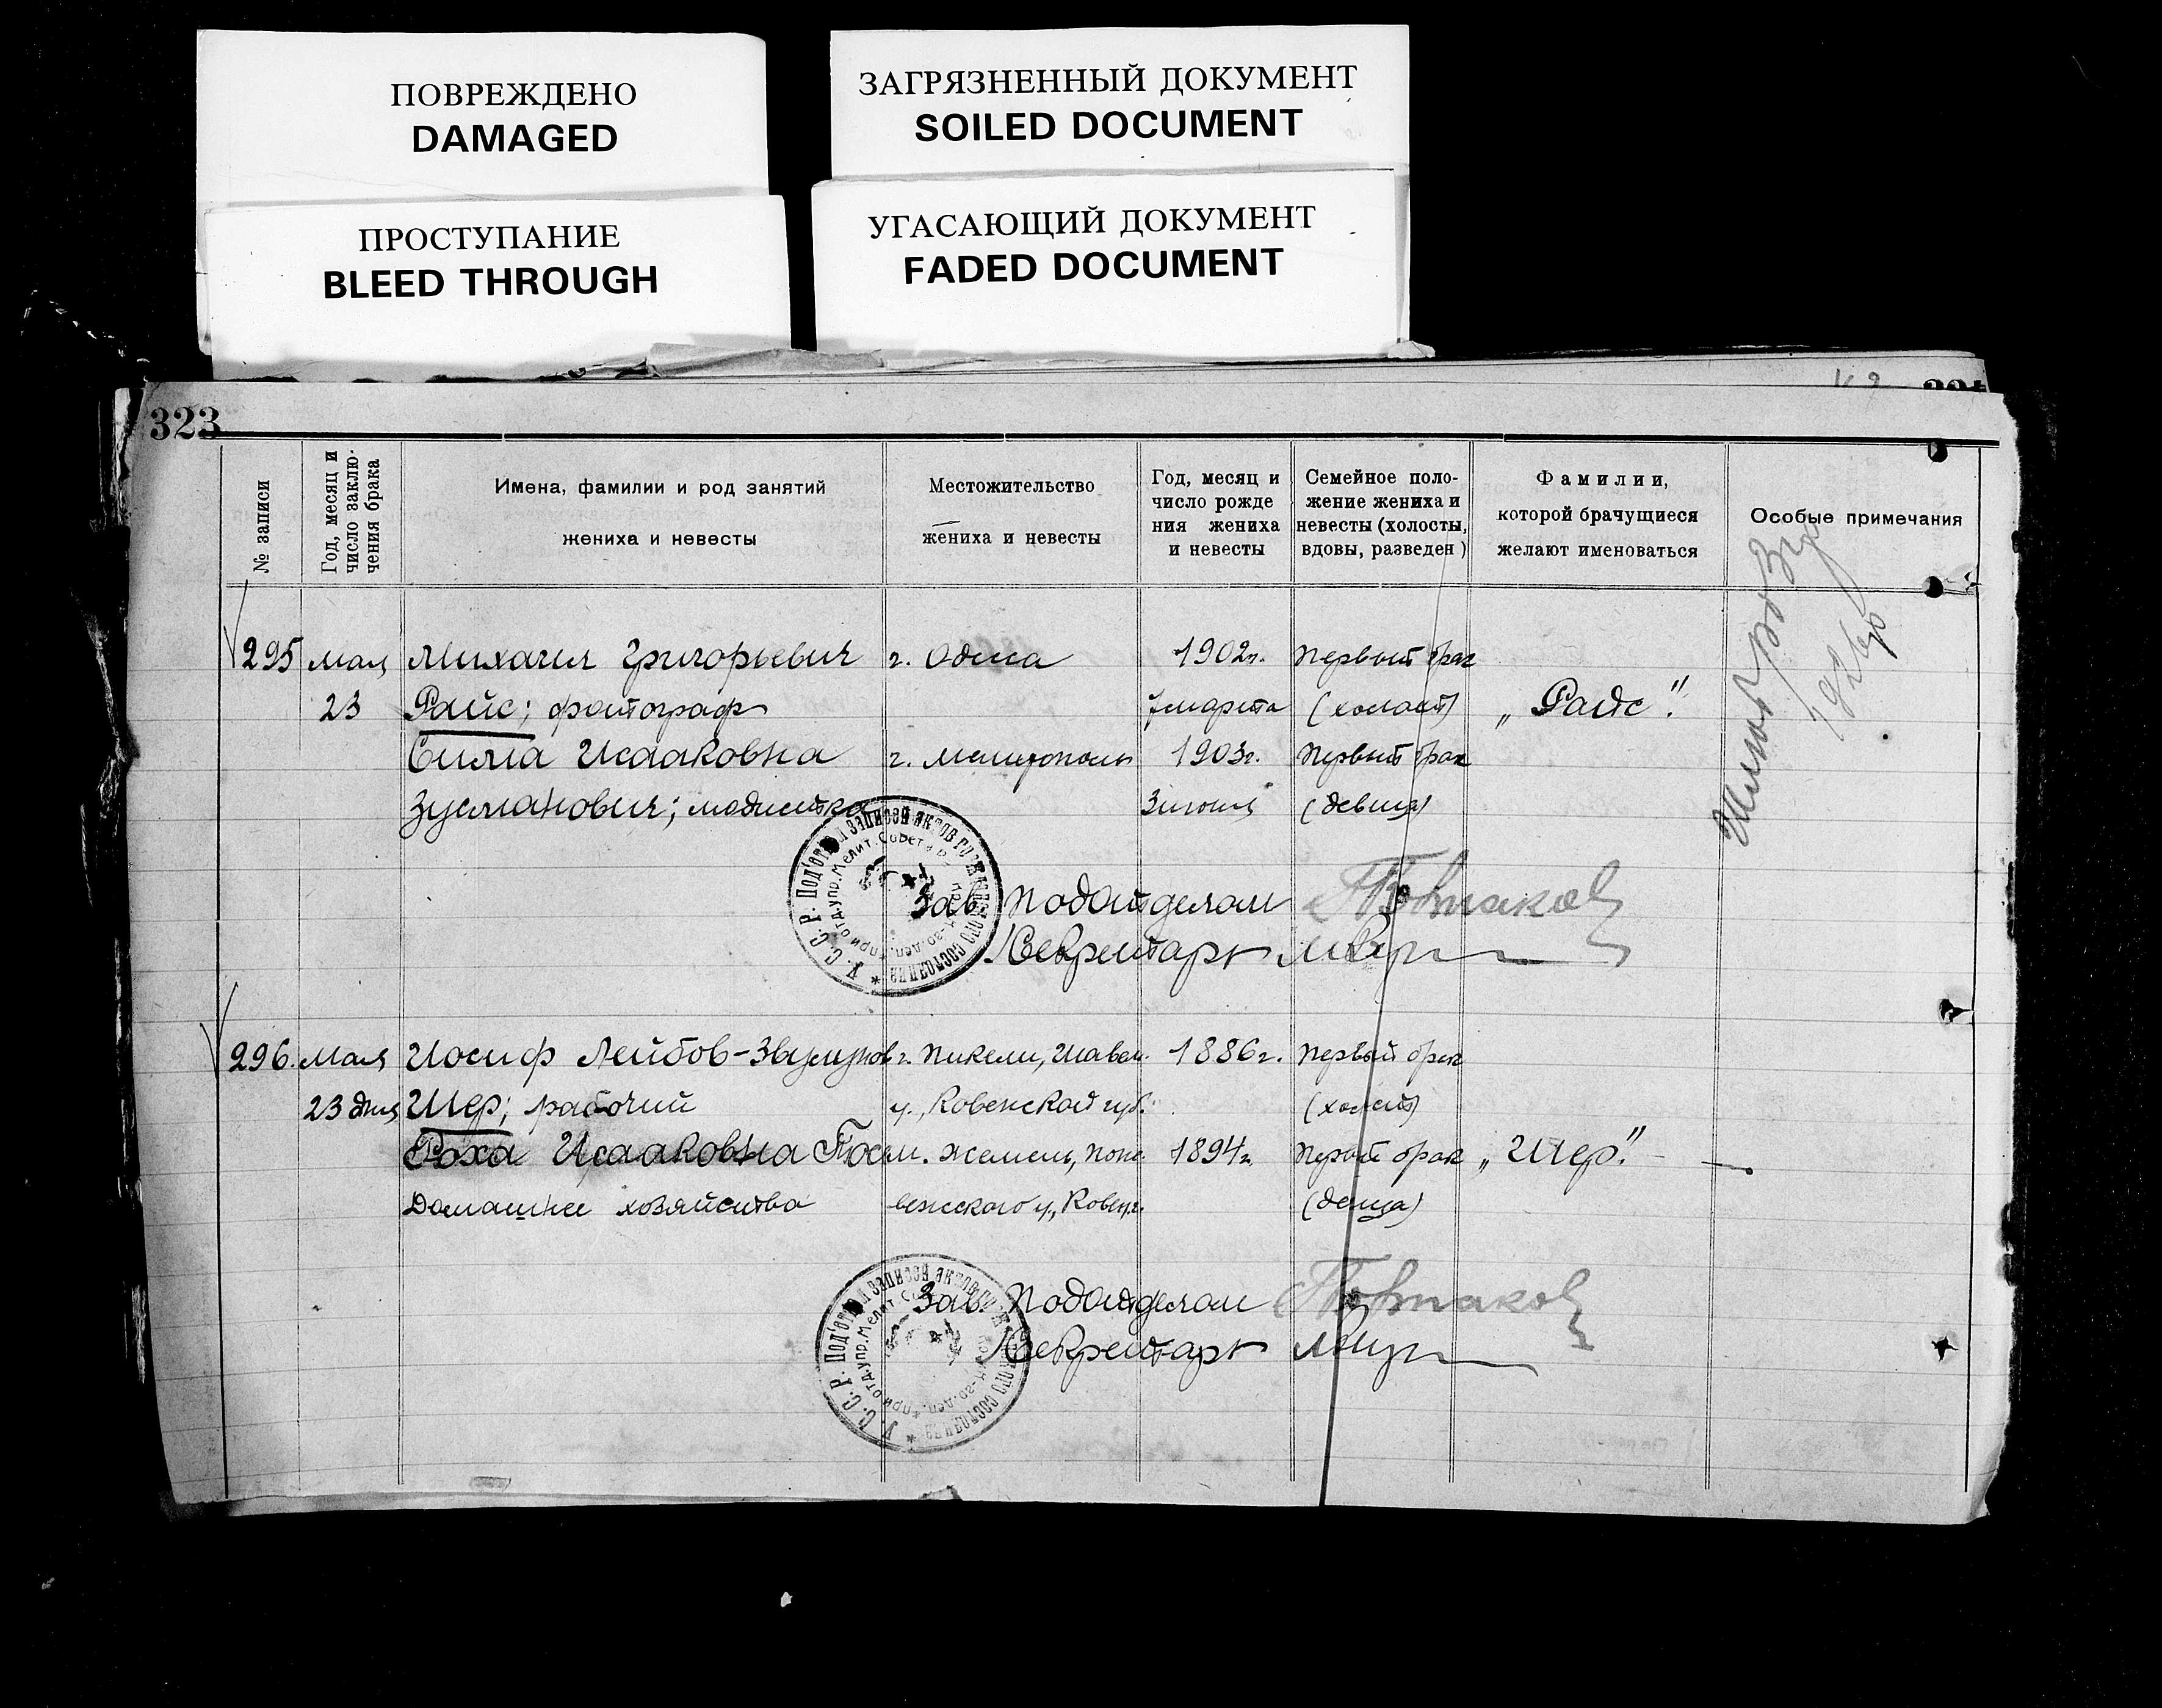 ПОВРЕЖДЕНО
DAMAGED
ЗАГРЯЗНЕННЫЙ ДОКУМЕНТ
SOILED DOCUMENT
ПРОСТУПАНИЕ
BLEED THROUGH
УГАСАЮЩИЙ ДОКУМЕНТ
FADED DOCUMENT
323
№ записи
Год, месяц и
число заклю-
чения брака
Имена, фамилии и род занятий
жениха и невесты
Местожительство
жениха и невесты
Год, месяц и
число рожде
ния жениха
и невесты
Семейное поло-
жение жениха и
невесты (холосты,
вдовы, разведен)
Фамилии,
которой брачущиеся
желают именоваться
Особые примечания
295 Мая Михаил Григорьевич г. Одесса 1902г. Первый брак
23 Райс; фотограф 7 марта (холост) „Райс".
Сима Исааковна г. Мелитополь 1903г. Первый брак
Зусманович; модистка 3 июня (девица)
Зав. Подотделом
Секретарь
296. Мая Иосиф Лейбов- г. Пикели, Шавел. 1886г. Первый брак
23 дня Шер; рабочий у., Ковенской губ. (холост)
Роха Исааковна м. 1894г. Первый брак „Шер".
Домашнее хозяйство у., (девица)
Зав. Подотделом
Секретарь
У.С.С.Р. Под'отдел записей актов гражданского состояния